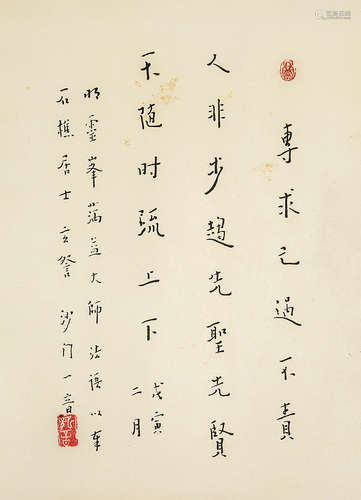 專求己過不責
人非步趨先聖先賢
不随时流上下
戊寅
二月
明靈峯蕅益大師法语以奉
石樵居士玄詧沙门一音